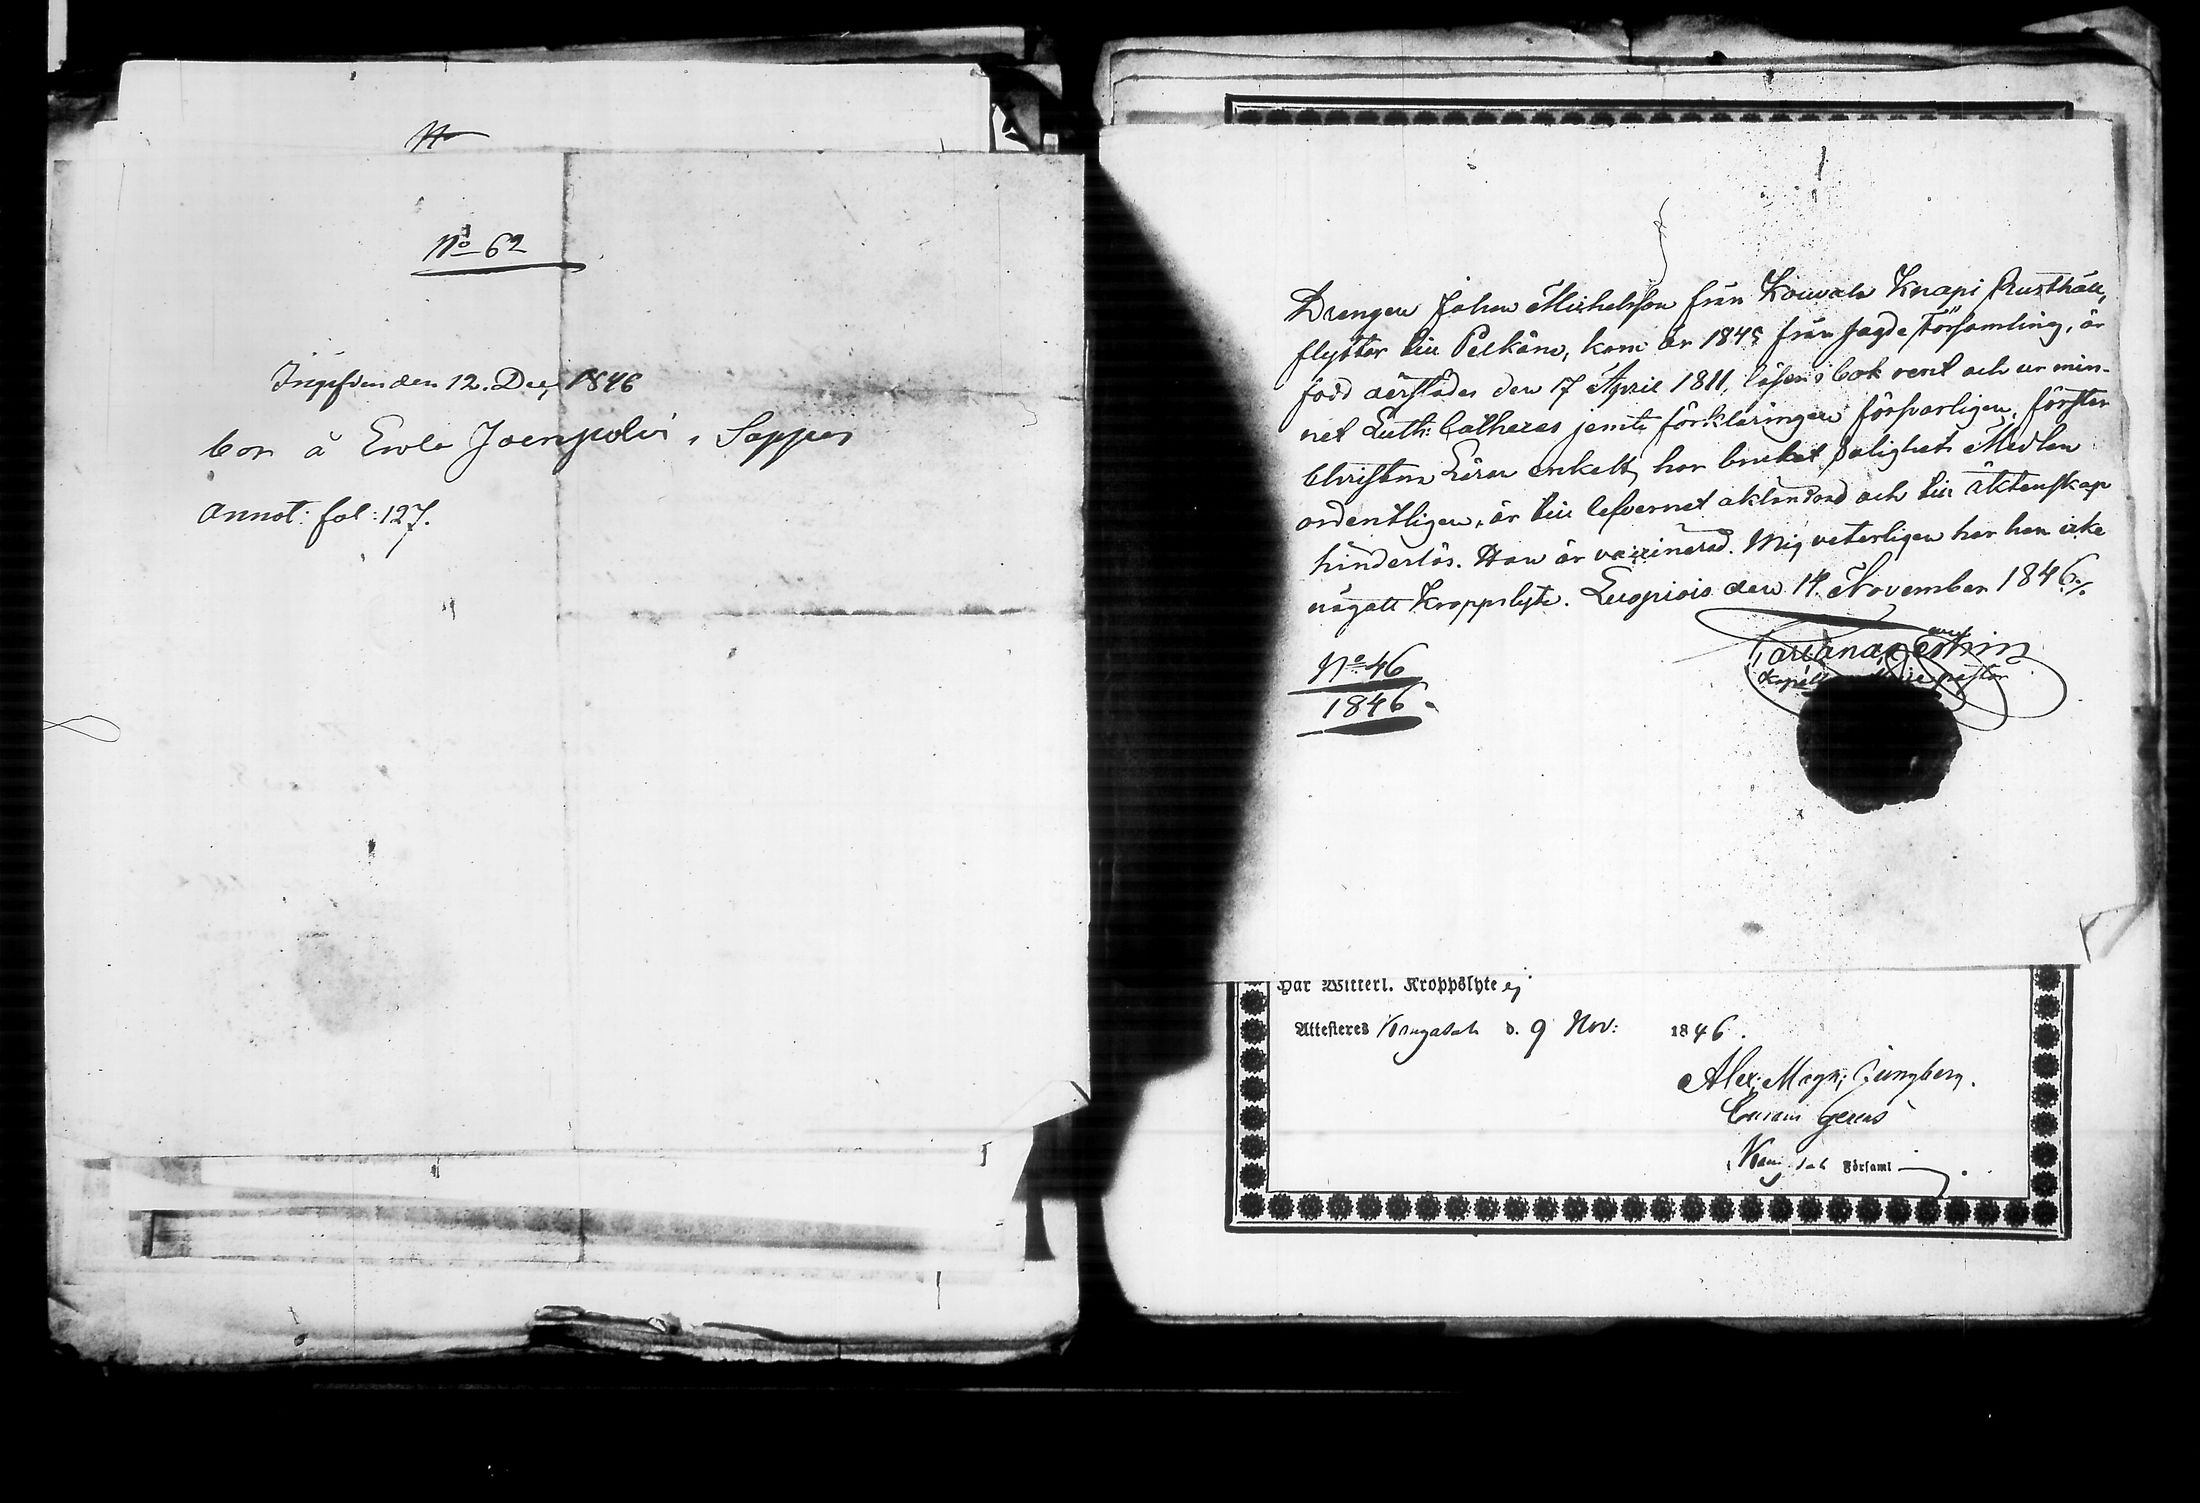 No 62
den 12. Dec, 1846
bor å Erola Joenpolvi i Sappee
Annot: fol: 127.
Drengen Johan Michelsson från Kouvala Knapi Rusthåll,
flyttar till Pelkäne, kom år 1845 från sagde Församling, är
född därstädes den 17 April 1811, läser i bok rent och ur min-
net Luth: Catheches jemte förklaringen försvarligen, förstår
Christna Läran enkelt, har brukat Salighets Medlen
ordentligen, är till lefvernet aktendad och till äktenskap
hinderlös. Han är vaccinerad. Mig veterligen har han icke
något Kroppslyte. Luopiois den 14 November 1846./.
No 46
1846.
Har Witterl. Kroppslyte ej
Attesteres Kangasala d. 9 Nov: 1846.
Alex: Magn: Ljungberg.
gerens
Församl